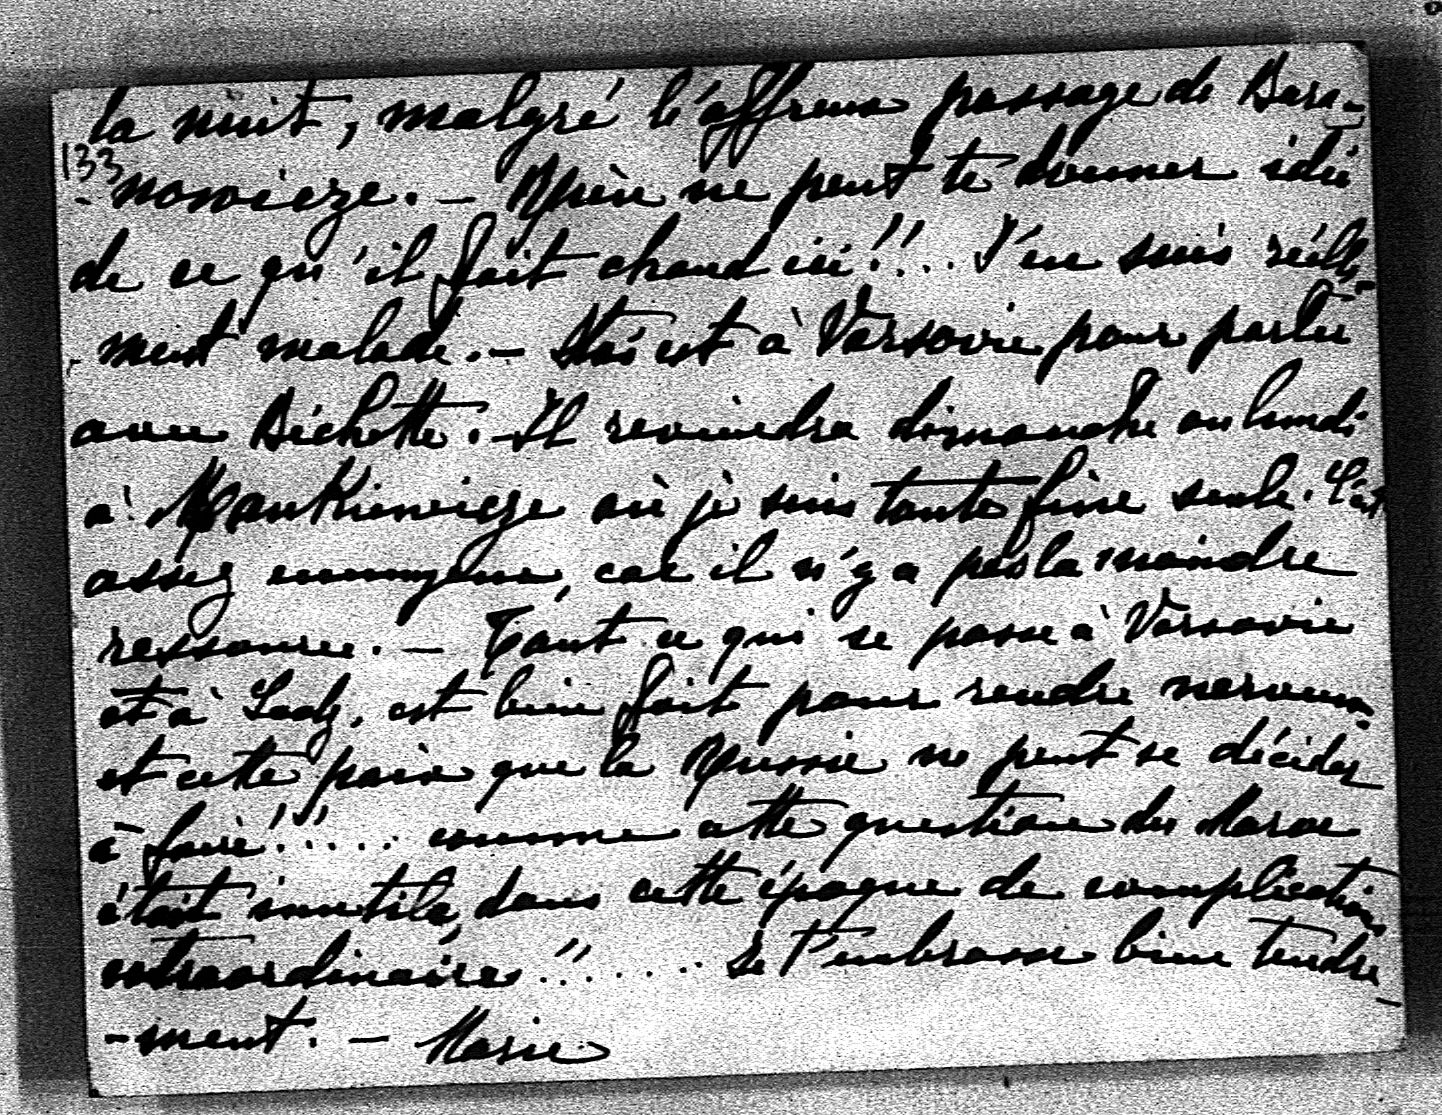 la nuit, malgré l'affreux passage de Bara-
133
-nowicze. — Rien ne peut te donner idée
de ce qu'il fait chaud ici!!... J'en suis réelle-
-ment malade. — Stas est à Varsovie pour parler
avec Bichette. — Il reviendra dimanche ou lundi
à Mankiewicze où je suis toute fine seule. C'est
assez ennuyeux, car il n'y a pas la moindre
ressource. — Tout ce qui se passe à Varsovie
et à Lodz, est bien fait pour rendre nerveux,
et cette paix que la Russie ne peut se décider
à faire!!..... comme cette question du Maroc
était inutile, dans cette époque de complications
extraordinaires!!...... Je t'embrasse bien tendre-
-ment. — Marie